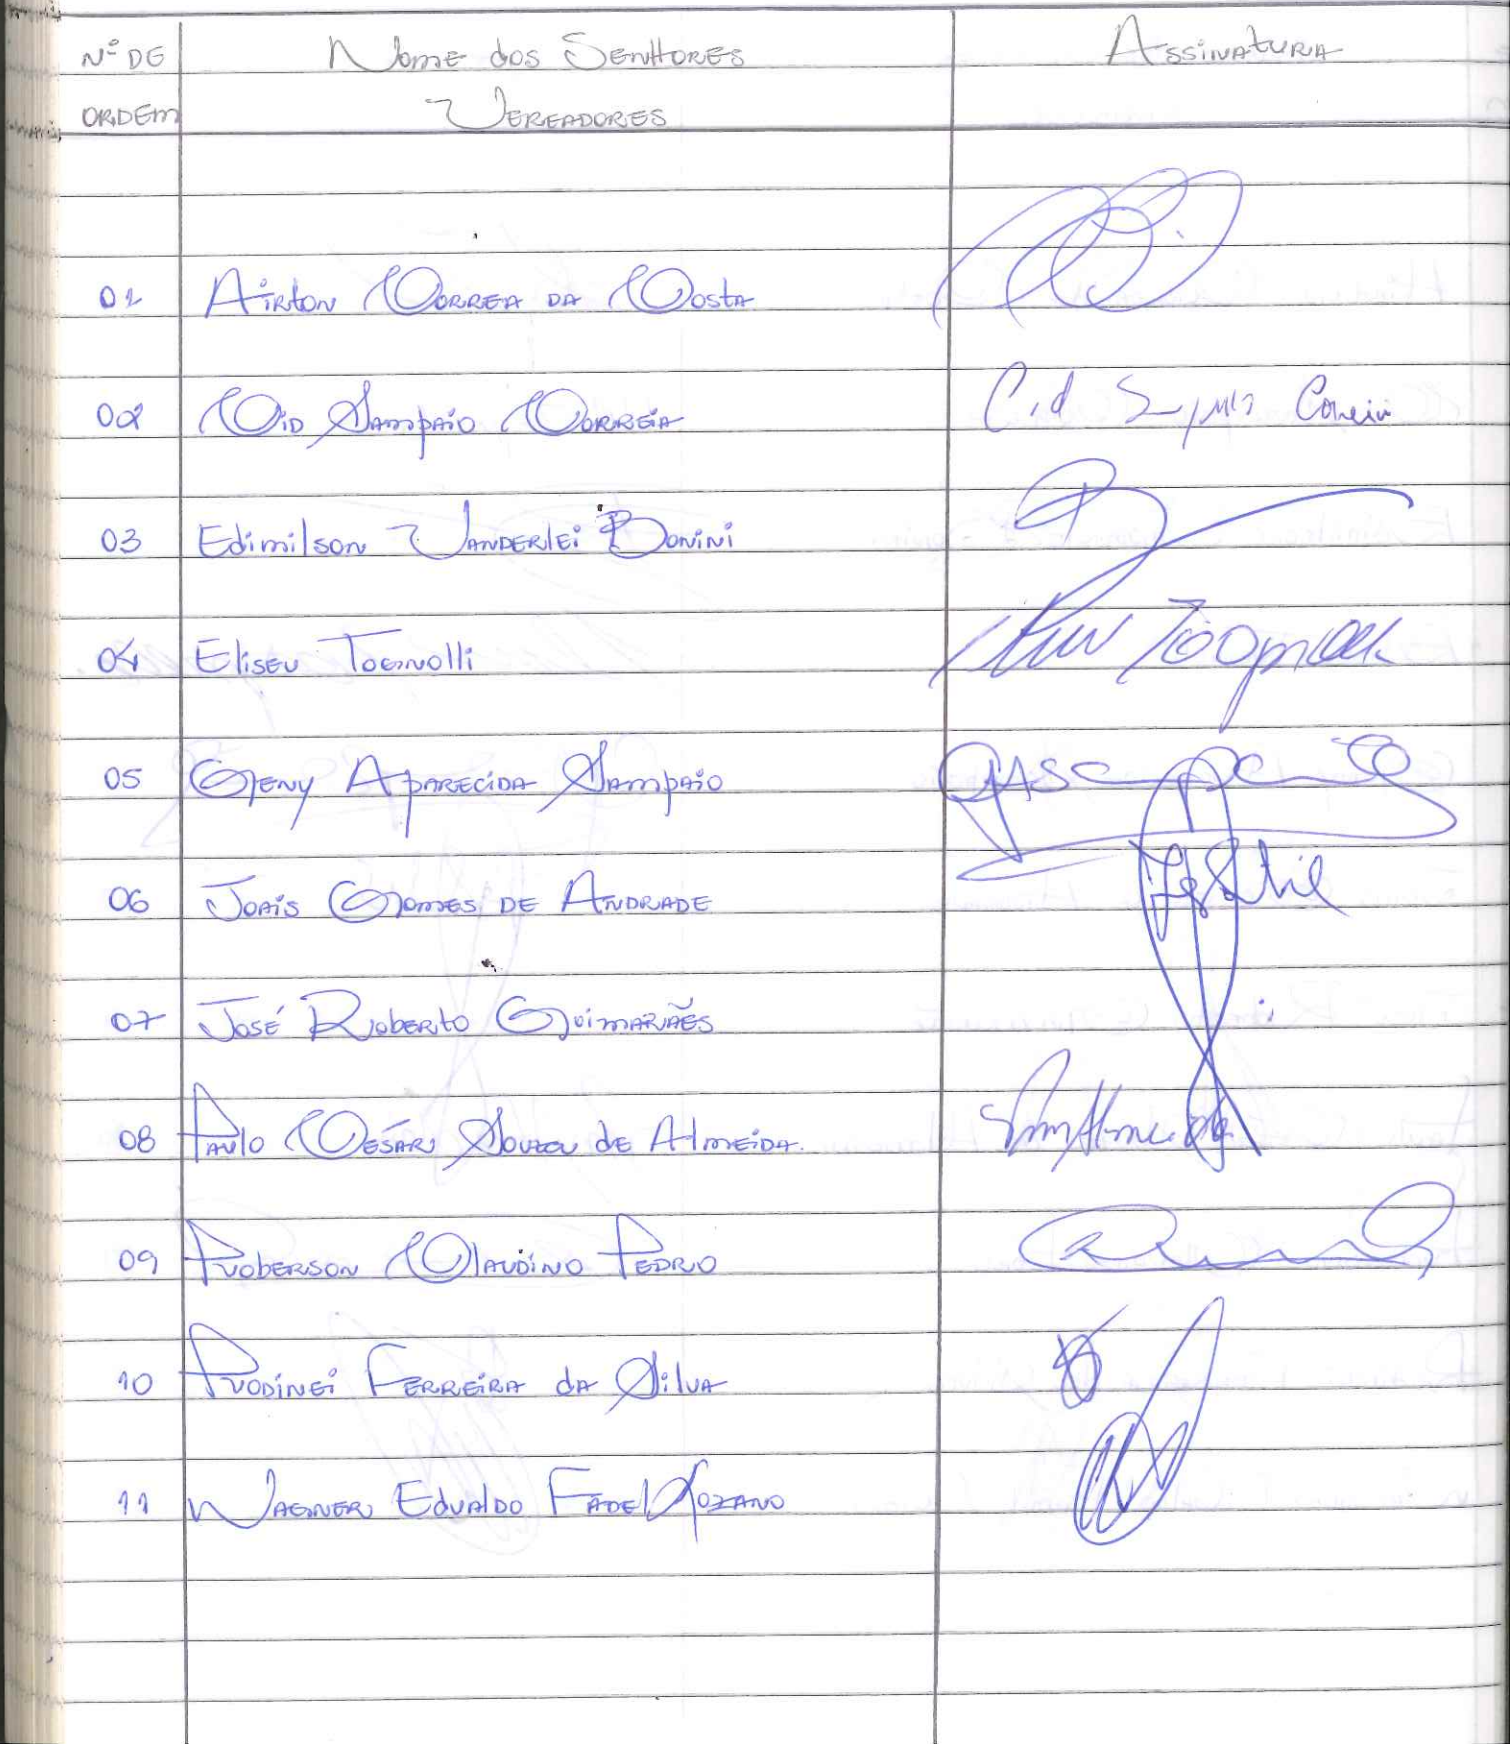 Nº DE Nome dos Senhores Assinatura
ORDEM Vereadores
01 Airton Correa da Costa
02 Cid Sampaio Correia Cid
03 Edimilson Vanderlei Bonini
04 Eliseu Tognolli
05 Geny Aparecida Sampaio
06 Joais Gomes de Andrade
07 José Roberto Guimarães
08 Paulo César Souza de Almeida.
09 Roberson Claudino Pedro
10 Rodinei Ferreira da Silva
11 Wagner Edvaldo Fadel Lozano